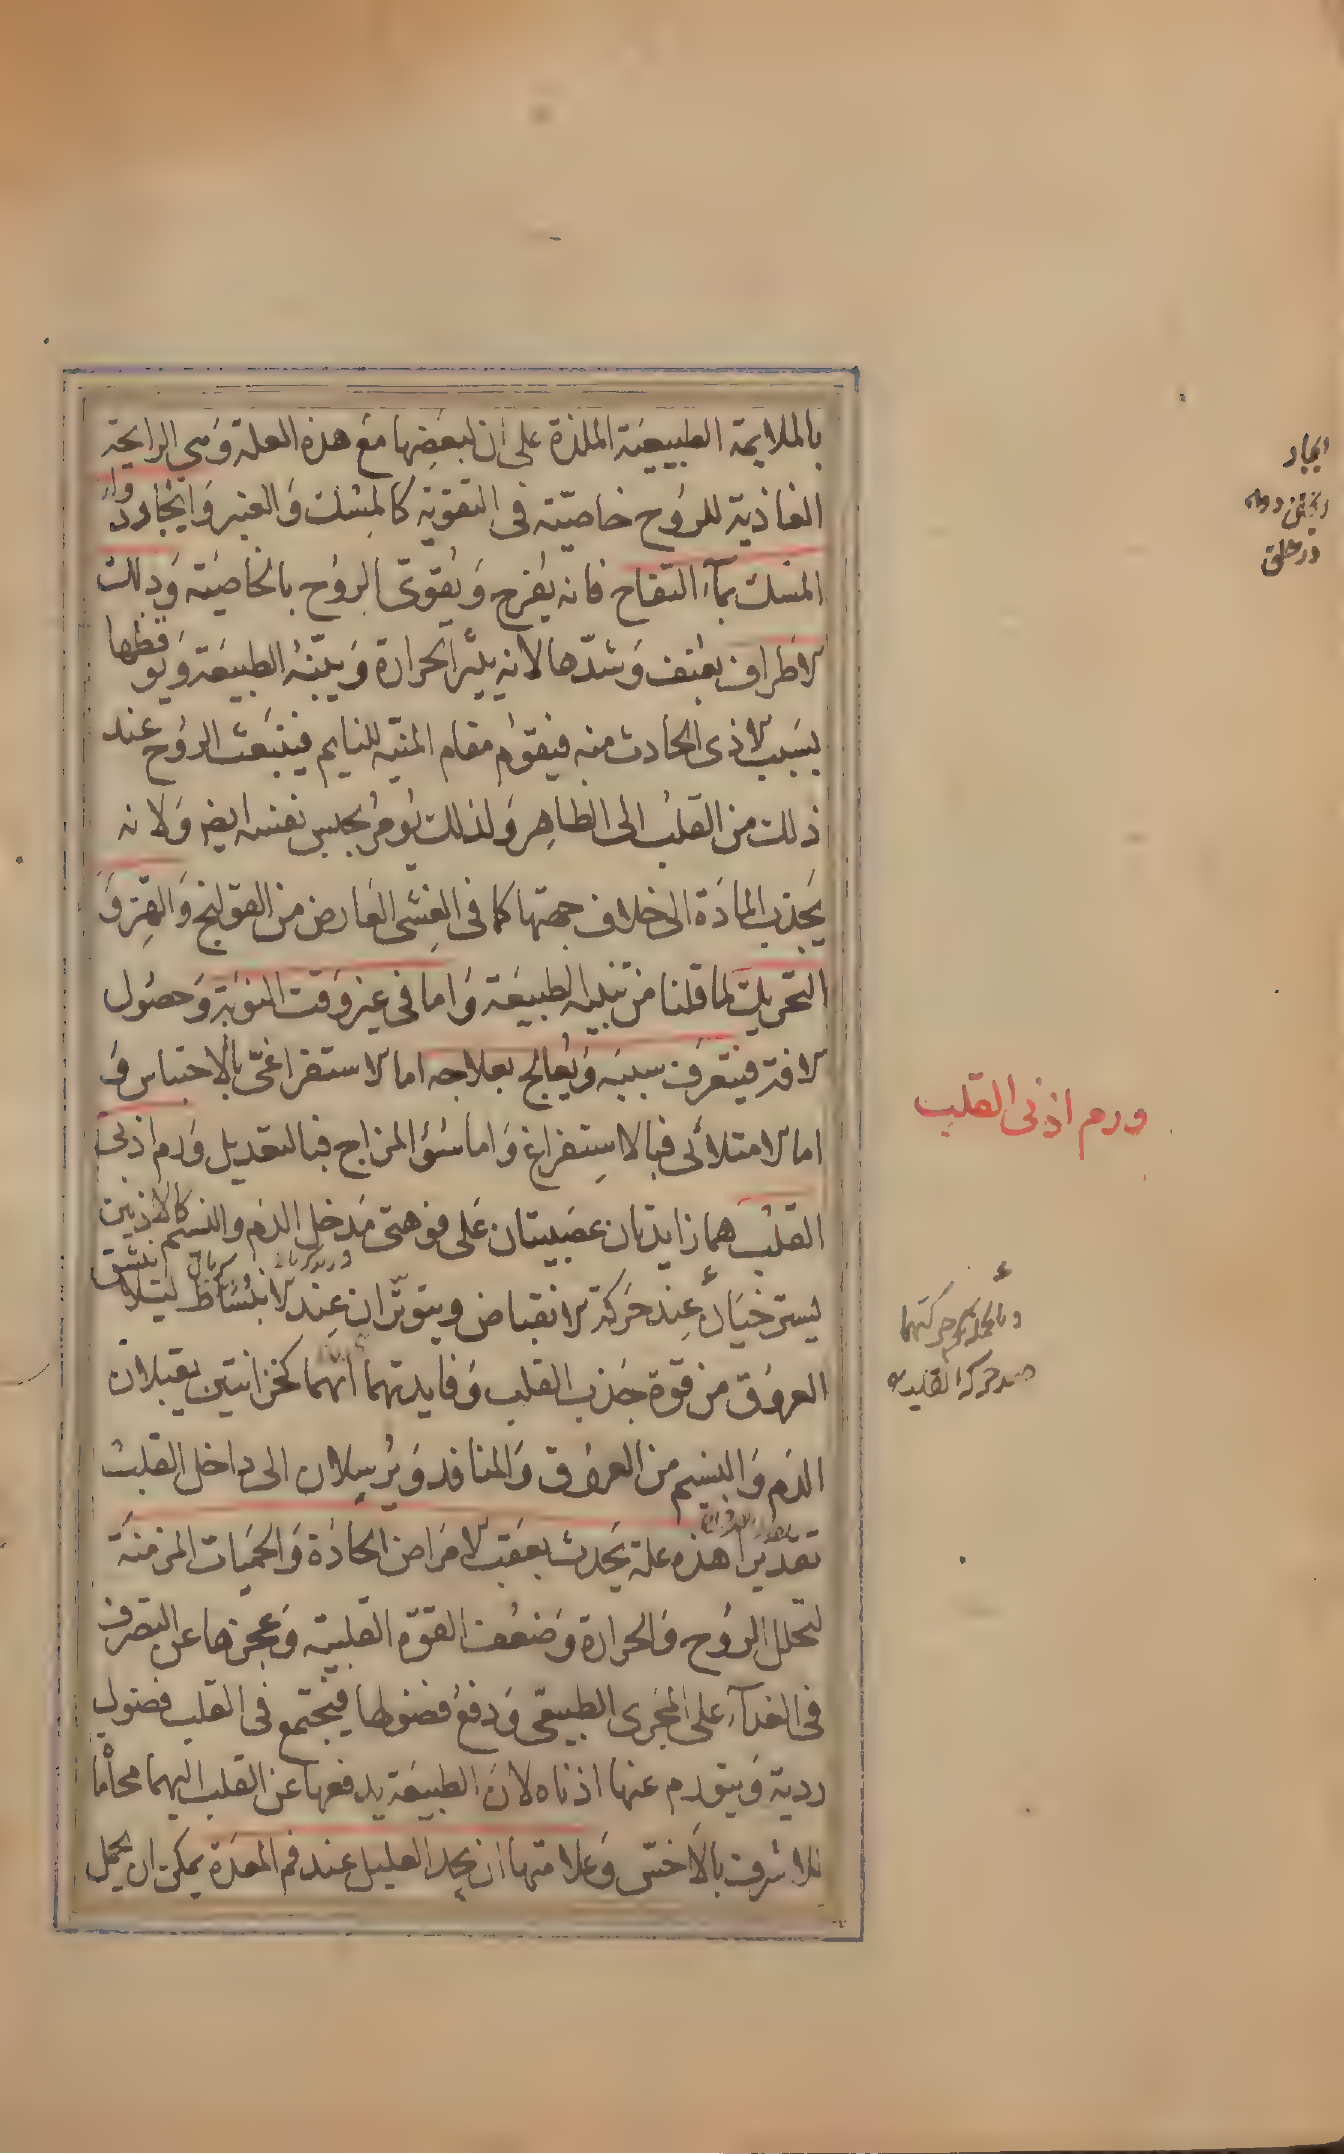 بالملايمة الطبيعية الملذة على ان لبعضها مع هذه العلة وهي الرايحة
الغاذية للروح خاصيته في التقوية كالمسك والعنبر وايجار دواء
المسك بماء التفاح فانه يفرح ويقوى الروح بالخاصيته ودلك
الاطراف بعنف وشدها لانه يثير الحرارة وينبه الطبيعة ويوقظها
بسبب الاذى الحادث منه فيقوم مقام المنبه للنايم فينبعث الروح عند
ذلك من القلب الى الظاهر ولذلك يؤمر بحبس نفسه ايضا ولانه
يجذب المادة الى خلاف جهتها كما في الغشى العارض من القولنج والهز و
التحريك لما قلنا من تنبيه الطبيعة واما في غير وقت النوبة وحصول
الافة فيتعرف سببه ويعالج بعلاجه اما الاستفراغى بالاحتباس و
اما الامتلائى فبالاستفراغ واما سوء المزاج فبالتعديل ورم اذنى
القلب هما زايدتان عصبيتان على فوهتى مدخل الدم والنسيم كالاذنين
يسترخيان عند حركة الانقباض ويتوتران عند الانبساط لئلا ينشق
العروق من قوة جذب القلب وفايدتهما انهما كخزانتين يقبلان
الدم والنسيم من العروق والمنافذ ويرسلان الى داخل القلب
تقديرا هذه علة يحدث بعقب الامراض الحادة والحميات المزمنة
لتحلل الروح والحرارة وضعف القوة القلبية وعجزها عن التصرف
في الغذاء على المجرى الطبيعى ودفع فضولها فيجتمع في القلب فضول
ردية ويتورم عنها اذناه لان الطبيعة يدفعها عن القلب اليهما محاماة
للاشرف بالاخس وعلامتها ان يجد العليل عند فم المعدة يمكن ان يحمل
ايجار
ريختن دوا
در حلق
ورم اذنى القلب
حركتهما
ضد حركة القلب